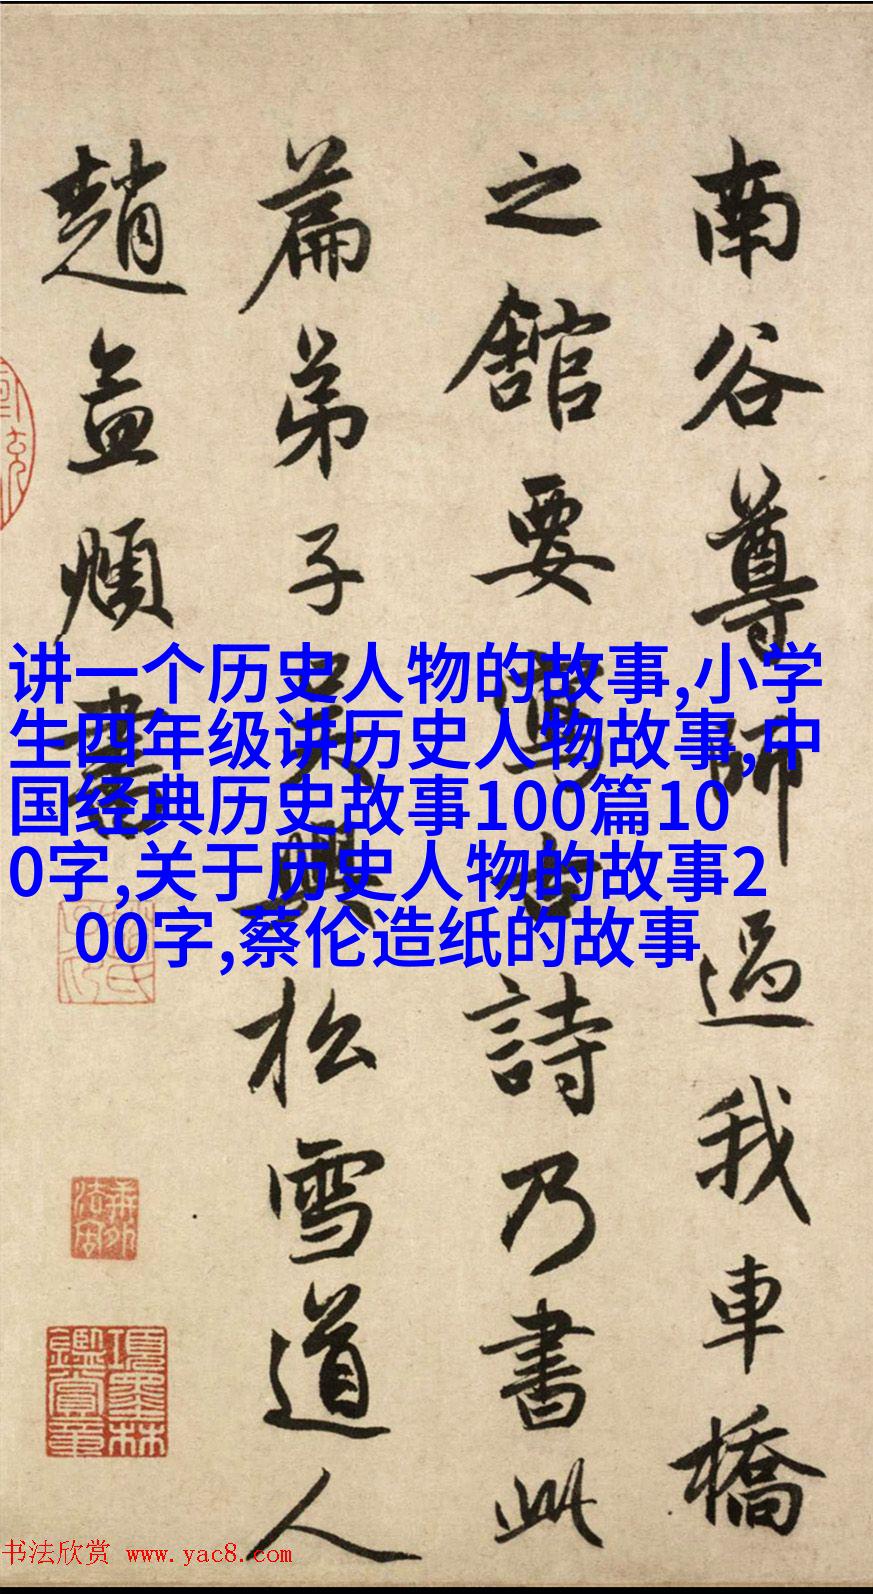 南谷尊師過我車橋
之舘要寫古詩乃書此
篇弟子吳興松雪道人
趙孟頫書
讲一个历史人物的故事,小学
生四年级讲历史人物故事,中
国经典历史故事100篇10
0字,关于历史人物的故事2
00字,蔡伦造纸的故事
項墨林鑑賞章
书法欣赏 www.yac8.com